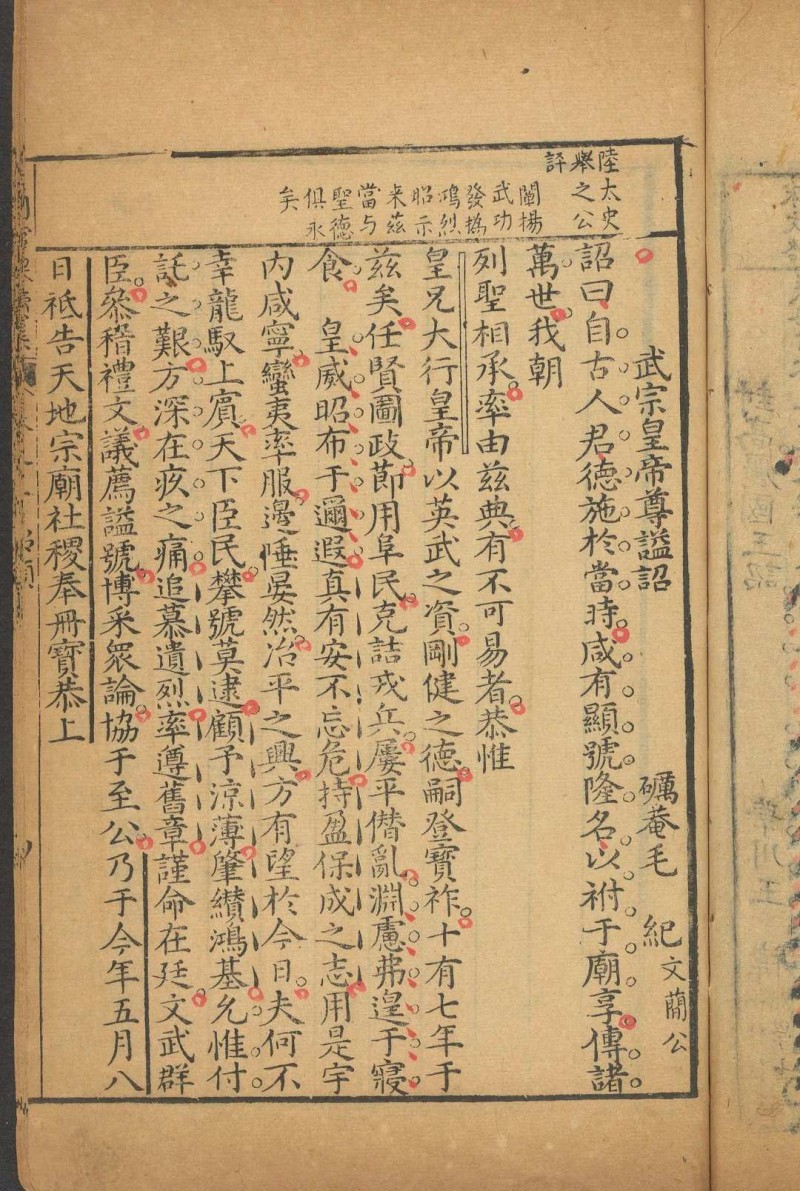 陸太史
舉之公
評
闡揚
武功
發揚
鴻烈
昭示
来茲
當与
聖德
俱永
矣
武宗皇帝尊謚詔 礪菴毛 紀文蕳公
詔曰自古人君德施於當時咸有顯號隆名以祔于廟享傳諸
萬世我朝
列聖相承率由茲典有不可易者恭惟
皇兄大行皇帝以英武之資剛健之德嗣登寶祚十有七年于
茲矣任賢圖政節用阜民克詰戎兵屢平僣亂淵慮弗遑于寢
食 皇威昭布于邇遐真有安不忘危持盈保成之志用是宇
内咸寧蠻夷率服邊陲晏然冶平之興方有望於今日夫何不
幸龍馭上賔天下臣民攀號莫逮顧予凉薄肇纉鴻基允惟付
託之艱方深在疚之痛追慕遺烈率遵舊章謹命在廷文武群
臣叅稽禮文議薦謚號博采衆論協于至公乃于今年五月八
日祇告天地宗廟社稷奉冊寶恭上